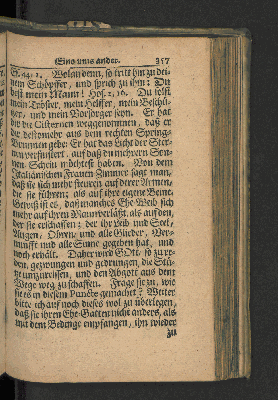 Eins ums ander. 357
E. 44. 1. Wolan denn, so tritt hin zu dei-
nem Schöpffer, und sprich zu ihm: Du
bist mein Mann! Hos. 2. 16. Du solst
mein Tröster, mein Helffer, mein Beschü-
tzer, und mein Vorsorger seyn. Er hat
dir die Cisternen weggenommen, daß er
dir destomehr aus dem rechten Spring-
Brunnen gebe: Er hat das Licht der Ster-
nen verfinstert, auf daß du mehrern Son-
nen-Schein möchtest haben. Von dem
Italiänischen Frauen-Zimmer sagt man,
daß sie sich mehr steuren auf derer Armen,
die sie führen; als auf ihre eigene Beine.
Gewiß ist es, daß manches Ehe-Weib sich
mehr auf ihren Mann verläßt, als auf den,
der sie erschaffen; der ihr Leib und Seel,
Augen, Ohren, und alle Glieder, Ver-
nunfft und alle Sinne gegeben hat, und
noch erhält. Daher wird GOtt, so zu re-
den, gezwungen und gedrungen, die Stü-
tze umzureissen, und den Abgott aus dem
Wege weg zu schaffen. Frage sie zu, wie
sie es in diesem Puncte gemacht? Weiter
bitte ich auf noch dieses wol zu überlegen,
daß sie ihren Ehe-Gatten nicht anders, als
mit dem Bedinge empfangen, ihn wieder
zu